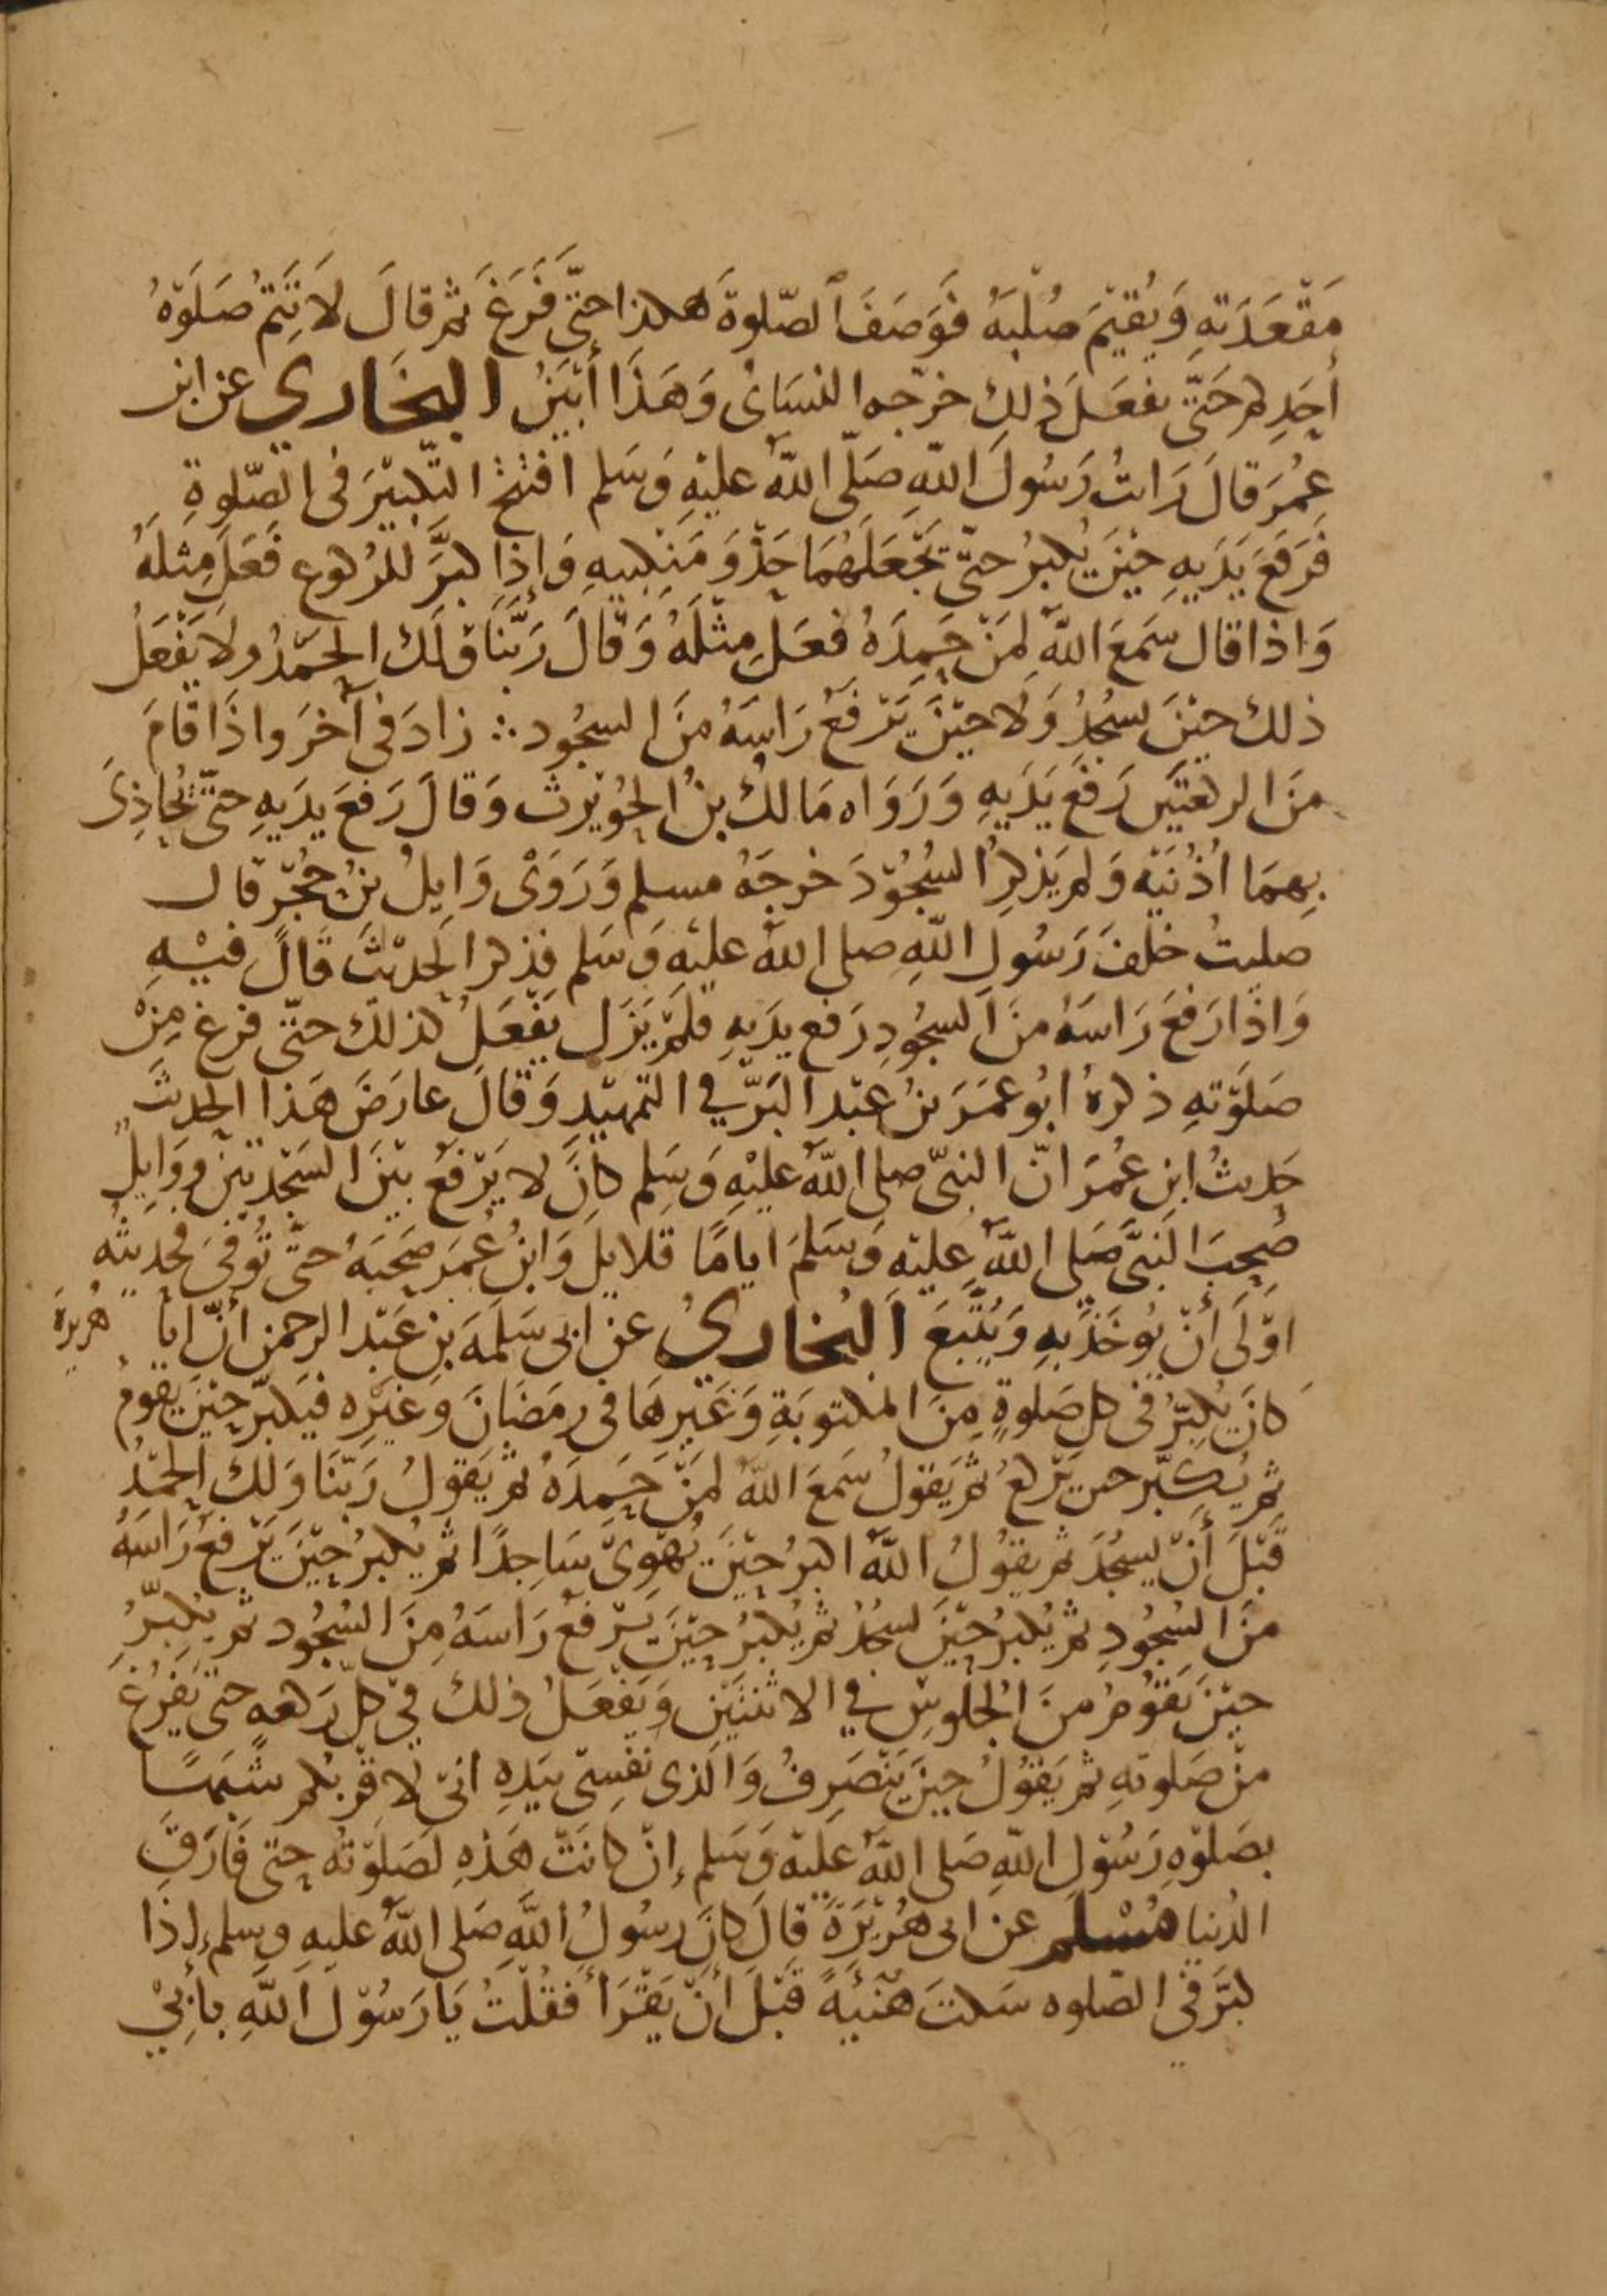 مَقْعَدَتِهِ وَيُقِيْمَ صُلْبَهُ فَوَصَفَ الصّلوةَ هكذا حتّى فَرَغَ ثم قالَ لَا تَتِمُّ صَلَوٰةُ
أحَدِكم حَتّى يفعَلَ ذلِكَ خرّجه النسَاىُ وَهَذَا أَبْيَنُ البخَارى عن ابن
عُمرَ قالَ رَايتُ رَسُولَ اللهِ صَلّى اللهُ عليْهِ وَسَلم افتتح التكبيْرَ فى الصّلوةِ
فَرَفَعَ يَدَيهِ حيْنَ يُكبرُ حتّى يَجْعَلَهُمَا حَذْوَ مَنْكبيهِ وَإِذا كبَّرَ للرُكوع فَعَلَ مِثلَهُ
وَاذا قال سَمعَ اللهُ لِمَنْ حَمِدَهُ فعَلَ مِثْلَهُ وَقَالَ رَبَّنَا وَلَكَ الحمْدُ ولا يَفْعَلُ
ذلك حيْنَ يسجُدُ وَلا حيْنَ يَرْفَعُ رَاسَهُ منَ السجُود ∴ زادَ فى آخرَ واذَا قَامَ
منَ الركعتيَن رَفعَ يَدَيهِ وَرَوَاه مَالكُ بنُ الحُوَيْرث وَقالَ رَفعَ يدَيهِ حتّى يُحَاذِىَ
بِهمَا اُذُنَيْه وَلم يَذكرُ السُجُوْدَ خرجَهُ مسلم وَرَوَىْ وَايلُ بنُ حُجْرٍ قال
صليتُ خلفَ رَسُولِ اللهِ صلى اللهُ عليْهِ وَسَلم فذكر الحديْثَ قَالَ فيْهِ
وَاذَا رَفعَ رَاسَهُ منَ السجُودِ رَفع يدَيهِ فلمْ يَزَل يَفْعَلُ كذلكَ حتّى فرغ مِنْ
صَلَوٰتهِ ذكرهُ ابُو عمَرَ بنُ عبْد البَرّ في التمهيْدِ وَقَالَ عارَضَ هَذا الحديثَ
حَديثُ ابن عُمَرَ انّ النبىّ صلى اللهُ عليْهِ وَسَلم كانَ لا يَرْفَعُ بيْنَ السَجْدتيْنِ ووَايلٌ
صَحِبَ النَبىَّ صَلى اللهُ عليْهِ وَسَلمَ اياماً قلايلَ وَابنُ عُمرَ صَحبَهُ حتّى تُوُفّىَ فحديثُه
اوْلَى أَنْ يُوخَذَ بهِ وَيُتّبَعَ البُخارىُ عن ابى سَلَمَةَ بنِ عَبْد الرحمن أنَّ ابا هُريرةَ
كانَ يُكبّرُ فى كل صَلَوةٍ مِنَ المكتوبَةِ وَغَيْرِهَا فى رمَضَانَ وَغيْرِه فيكبرُ حيْنَ يقومُ
ثم يُكبّر حين يَرْكعُ ثم يَقولُ سَمعَ اللهُ لمَنْ حَمِدَهُ ثم يَقولُ رَبّنَا وَلكَ الحمْدُ
قَبْلَ أَنْ يسجُدَ ثم يقوُلُ اللهُ اكبرُ حيْنَ يُهْوِىْ سَاجدًا ثم يُكبرُ حيْنَ يَرْفعُ رَاسَهُ
منَ السُجُودِ ثم يُكبرُ حيْنَ يسجُدُ ثم يُكبرُ حيْنَ يَرْفعُ رَاسَهُ مِنَ السُجُود ثم يُكبّرُ
حيْنَ يَقوُمُ منَ الجُلوسِ في الاثنتيْنِ وَيَفْعَلُ ذلكَ فيْ كلّ رَكعه حتّى يَفرُغَ
منْ صَلوتهِ ثم يَقوُلُ حيْنَ يَنْصَرفُ وَالذى نفْسِىْ بيَدِهِ انىّ لاقْربُكم شَبَهًا
بصَلَوٰةِ رَسُوْلِ اللهِ صَلى اللهُ عَليْهِ وَسَلم إنْ كانَتْ هَذِهِ لَصَلَوٰتُهُ حتّى فَارَقَ
الدُنيا مُسْلم عن ابى هُرَيْرَةَ قالَ كانَ رسُولُ اللهِ صَلى اللهُ عليهِ وسلم إذا
كبَّرَ فى الصّلوه سَكتَ هُنَيَّةً قَبْلَ أنْ يَقْرَأَ فقُلْتُ يَا رَسُوْلَ اللهِ بأَبِيْ